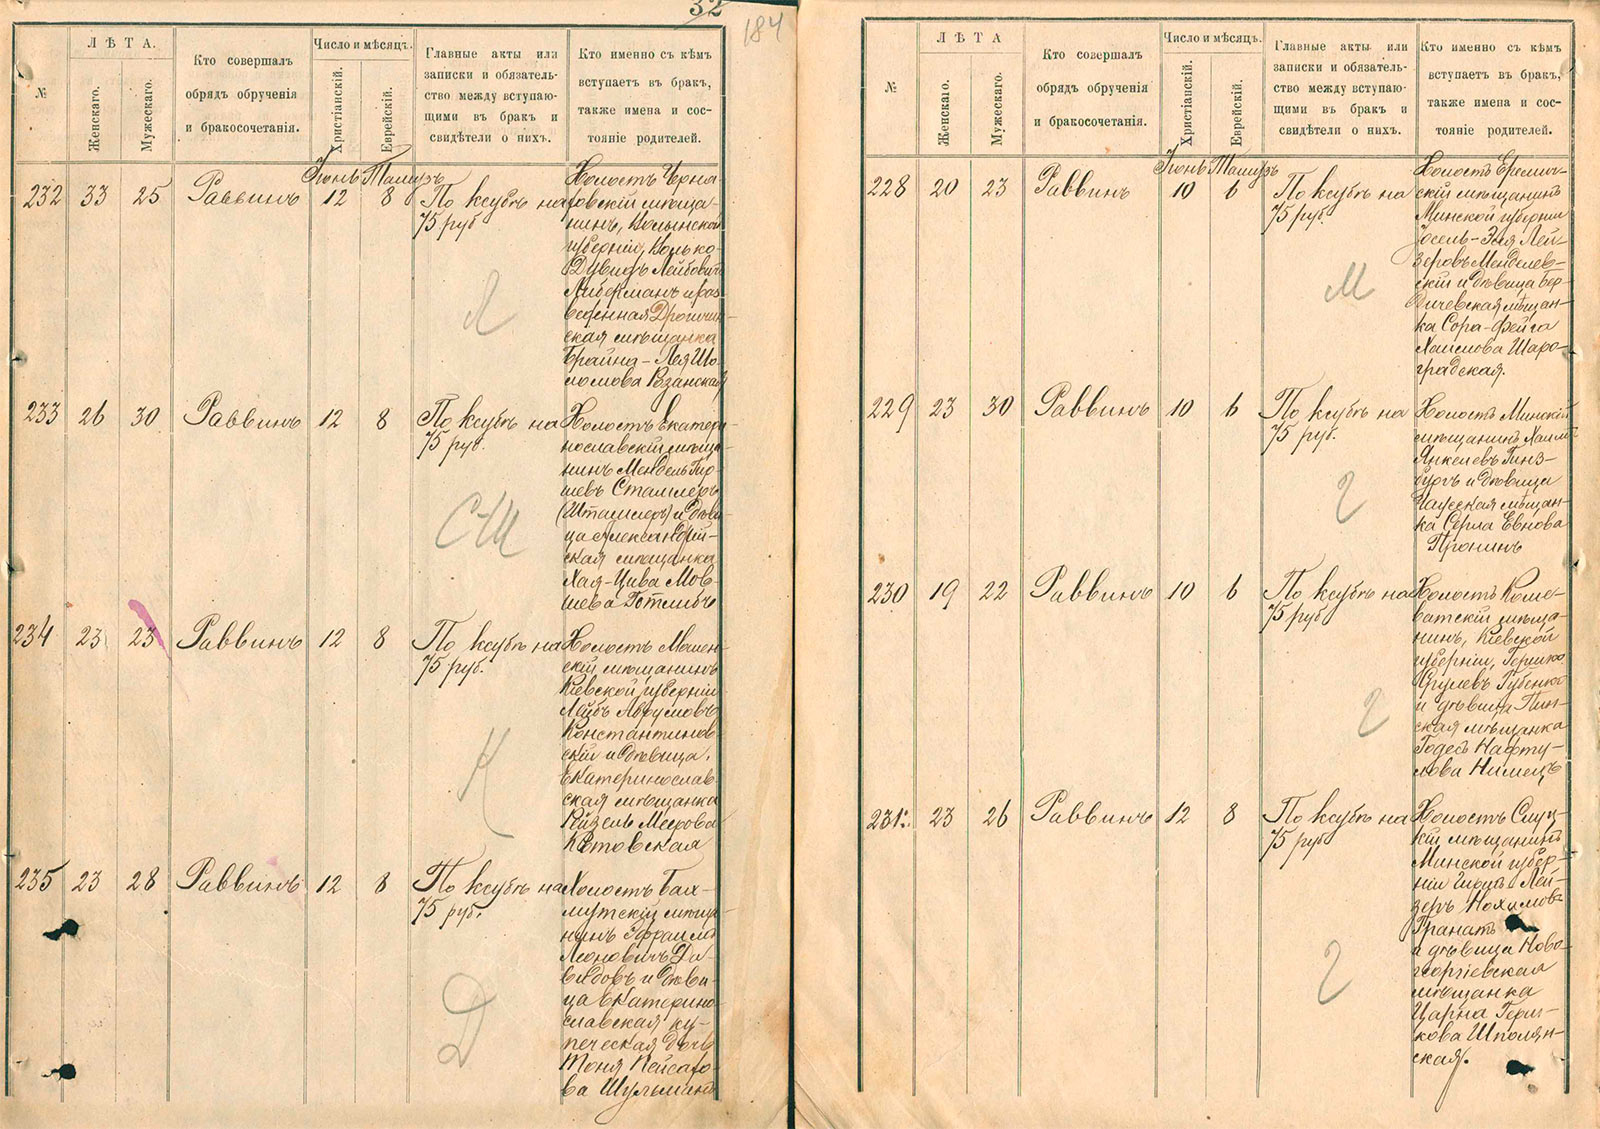 32
184
№
ЛѢТА.
Женскаго.
Мужескаго.
Кто совершалъ
обрядъ обрученія
и бракосочетанія.
Число и мѣсяцъ.
Христіанскій.
Еврейскій.
Главные акты или
записки и обязатель-
ство между вступаю-
щими въ бракъ и
свидѣтели о нихъ.
Кто именно съ кѣмъ
вступаетъ въ бракъ,
также имена и сос-
тояніе родителей.
Іюнь Тамузъ
232 33 25 Раввинъ 12 8 По ксубѣ на
75 руб
Холостъ Черня-
ховскій мѣща-
нинъ, Волынской
губерніи, Волько-
Дувидъ Лейбовичъ
Либерманъ и раз-
веденная Дрогичин-
ская мѣщанка
Брайна-Лея Шо-
ломова Рязанская
Л
233 26 30 Раввинъ 12 8 По ксубѣ на
75 руб.
Холостъ Екатери-
нославскій мѣща-
нинъ Мендель Гир-
шевъ Сташлеръ
(Шташлеръ) и дѣви-
ца Александрій-
ская мѣщанка
Хая-Цива Мов-
шева Готлибъ
С-Ш
234 23 23 Раввинъ 12 8 По ксубѣ на
75 руб.
Холостъ Мошен-
скій мѣщанинъ
Кіевской губерніи
Лейбъ Аврумовъ
Константинов-
скій и дѣвица,
Екатеринослав-
ская мѣщанка
Рейзель Меерова
Котовская
К
235 23 28 Раввинъ 12 8 По ксубѣ на
75 руб.
Холостъ Бах-
мутскій мѣща-
нинъ Эфраимъ
Леоновичъ Да-
выдовъ и дѣви-
ца Екатерино-
славская ку-
печеская дочь
Тоня Пейсахо-
ва Шульманъ
Д
№
ЛѢТА
Женскаго.
Мужескаго.
Кто совершалъ
обрядъ обрученія
и бракосочетанія.
Число и мѣсяцъ.
Христіанскій.
Еврейскій.
Главные акты или
записки и обязатель-
ство между вступаю-
щими въ бракъ и
свидѣтели о нихъ.
Кто именно съ кѣмъ
вступаетъ въ бракъ,
также имена и сос-
тояніе родителей.
Іюнь Тамузъ
228 20 23 Раввинъ 10 6 По ксубѣ на
75 руб.
Холостъ Еремич-
скій мѣщанинъ
Минской губерніи
Іосель-Эля Лей-
зеровъ Менделев-
скій и дѣвица Бер-
дичевская мѣщан-
ка Сора-Фейга
Хаимова Шаро-
градская.
М
229 23 30 Раввинъ 10 6 По ксубѣ на
75 руб.
Холостъ Минскій
мѣщанинъ Хаимъ
Янкелевъ Гинз-
бургъ и дѣвица
Чаусская мѣщан-
ка Серла Евнова
Пронинъ
Г
230 19 22 Раввинъ 10 6 По ксубѣ на
75 руб
Холостъ Коше-
ватскій мѣща-
нинъ, Кіевской
губерніи, Гершко
Срулевъ Губенко
и дѣвица Пин-
ская мѣщанка
Годесъ Нафту-
лова Нимецъ
Г
231. 23 26 Раввинъ 12 8 По ксубѣ на
75 руб
Холостъ Слуц-
кій мѣщанинъ
Минской губер-
ніи Гиршъ Лей-
зеръ Нохимовъ
Гранатъ
и дѣвица Ново-
георгіевская
мѣщанка
Царна Герш-
кова Шполян-
ская.
Г